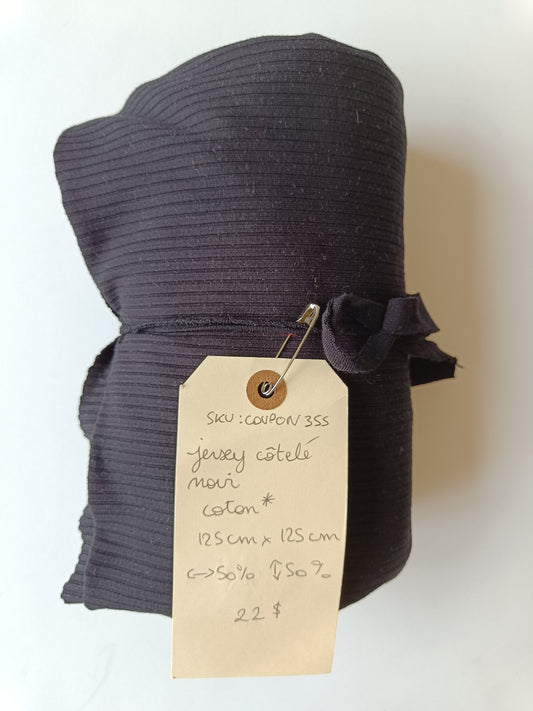 SKU : COUPON 355
jersey côtelé
noir
coton*
125 cm x 125 cm
↔ 50% ↕ 50%
22 $